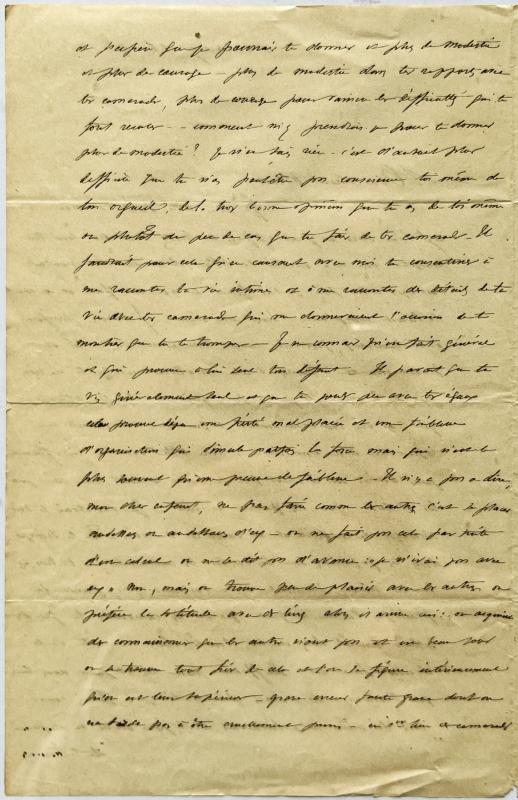 et j'espère que je pourrais te donner et plus de modestie
et plus de courage – plus de modestie dans tes rapports avec
tes camarades, plus de courage pour vaincre les difficultés qui te
font reculer – comment m'y prendrois-je pour te donner
plus de modestie ? Je n'en sais rien – c'est d'autant plus
difficile que tu n'as peut-être pas conscience toi même de
ton orgueil, de la trop bonne opinion que tu as de toi même
ou plutôt du peu de cas que tu fais de tes camarades. Il
faudrait pour cela qu'en causant avec moi tu consentisses à
me raconter ta vie intime et à me raconter des détails de ta
vie avec tes camarades qui me donneraient l'occasion de te
montrer que tu te trompes – Je ne connais qu'un fait général
et qui prouve à lui seul ton défaut – Il paraît que tu
vis généralement seul et que tu joues peu avec tes égaux
cela prouve déjà une fierté mal placée et une faiblesse
d'organisation qui simule parfois la force mais qui n'est le
plus souvent qu'une preuve de faiblesse – Il n'y a pas à dire,
mon cher enfant, ne pas faire comme les autres c'est se placer
au dessus ou au dessous d'eux – on ne fait pas cela par suite
d'un calcul on ne se dit pas d'avance : je n'irai pas avec
eux. Non, mais on trouve peu de plaisir avec les autres on
préfère la solitude avec des livres alors il arrive ceci : on acquiert
des connaissances que les autres n'ont pas et un beau jour
on se trouve tout fier de cela et l'on se figure intérieurement
qu'on est leur supérieur – grave erreur faute grave dont on
ne tarde pas à être cruellement puni – en 1er lieu ces camarades